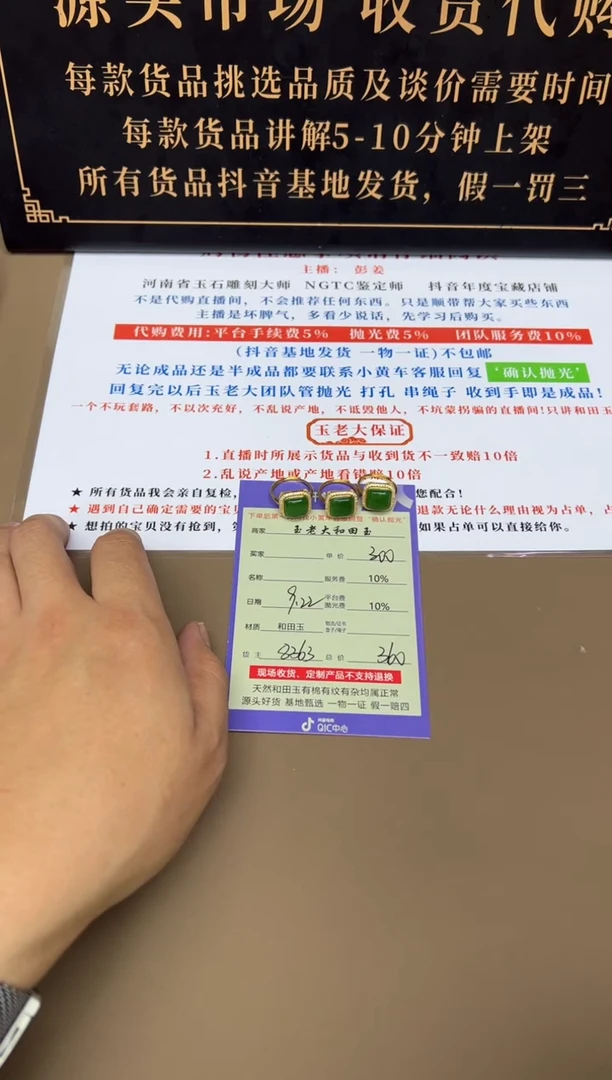 源头市场 收货代购
每款货品挑选品质及谈价需要时间
每款货品讲解5-10分钟上架
所有货品抖音基地发货，假一罚三
主播： 彭姜
河南省玉石雕刻大师 NGTC鉴定师 抖音年度宝藏店铺
不是代购直播间，不会推荐任何东西。只是顺带帮大家买些东西
主播是坏脾气，多看少说话，先学习后购买。
代购费用:平台手续费5% 抛光费5% 团队服务费10%
(抖音基地发货 一物一证)不包邮
无论成品还是半成品都要联系小黄车客服回复 ‘确认抛光’
回复完以后玉老大团队管抛光 打孔 串绳子 收到手即是成品!
一个不玩套路，不以次充好，不乱说产地，不诋毁他人，不坑蒙拐骗的直播间!只讲和田玉
玉老大保证
1.直播时所展示货品与收到货不一致赔10倍
2.乱说产地或产地看错赔10倍
★ 所有货品我会亲自复检， 您配合!
★ 遇到自己确定需要的宝贝 退款无论什么理由视为占单，占
★ 想拍的宝贝没有抢到， 如果占单可以直接给你。
商家 玉老大和田玉
买家 单价 300
名称 服务费 10%
日期 9.22 平台费 抛光费 10%
材质 和田玉
货主 8263 总价 360
现场收货、定制产品不支持退换
天然和田玉有棉有纹有杂均属正常
源头好货 基地甄选 一物一证 假一赔四
抖音电商
QIC中心